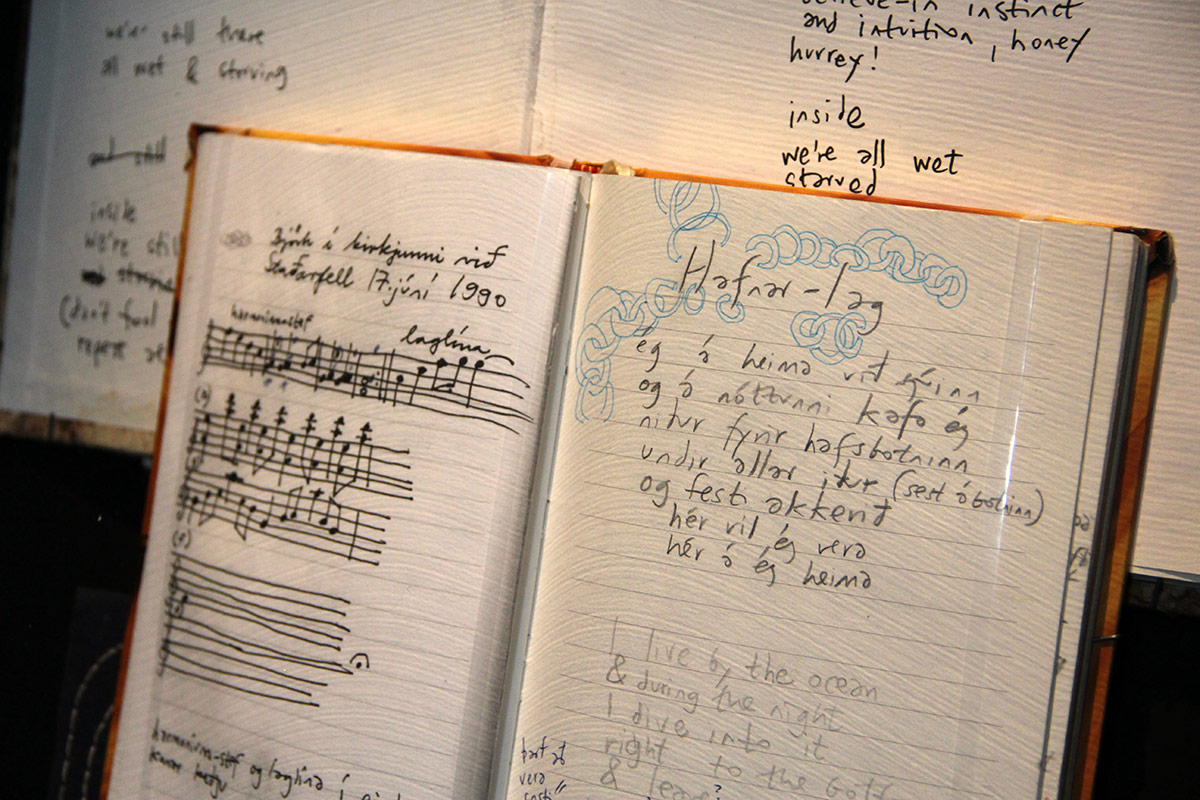 we're still there
all wet & starving
and still
inside
we're still
(don't fool
repeat
believe-in instinct
and intuition, honey
hurrey!
inside
we're all wet
starved
Björk í kirkjunni við
Staðarfell 17. júní 1990
harmoniumstef
laglína
harmonium-stef og laglína í
Hafnar-lag
ég á heima við sjóinn
og á nóttunni kafa ég
niður fyrir hafsbotninn
undir allar iður (sest á botninn)
og festi akkerið
hér vil ég vera
hér á ég heima
I live by the ocean
& during the night
I dive into it
right to the
&
þart at
vera